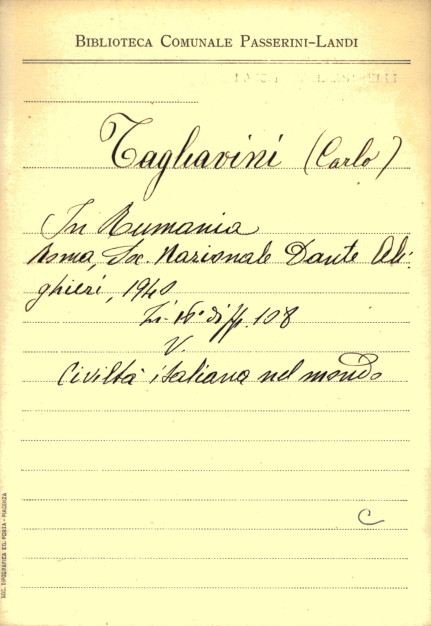 BIBLIOTECA COMUNALE PASSERINI-LANDI
Tagliavini (Carlo)
In Rumania
Roma, Soc. Nazionale Dante Ali-
ghieri, 1940
in 16° di pp. 108
V.
Civiltà italiana nel mondo
C
SOC. TIPOGRAFICA ED. PORTA - PIACENZA